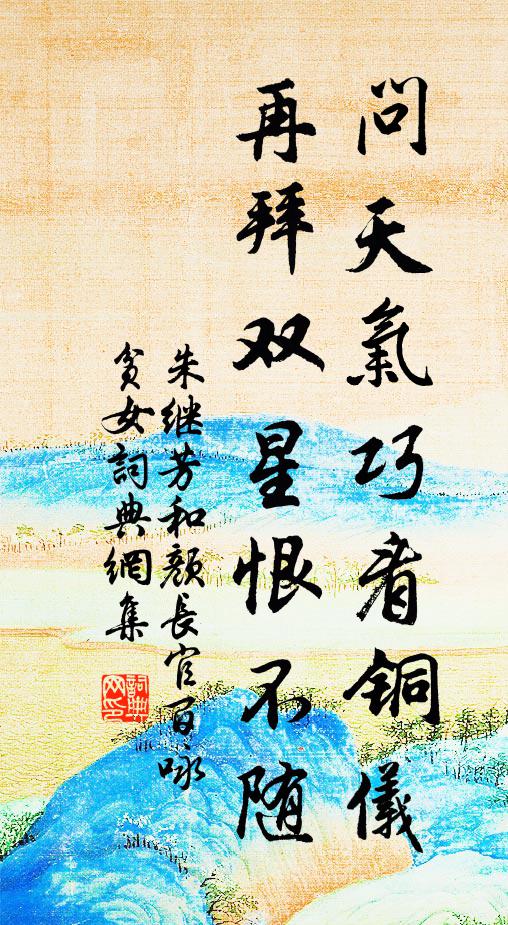 问天氣巧看铜儀
再拜双星恨不随
朱继芳和颜長官百咏
貧女詞典網集
詞典
网印